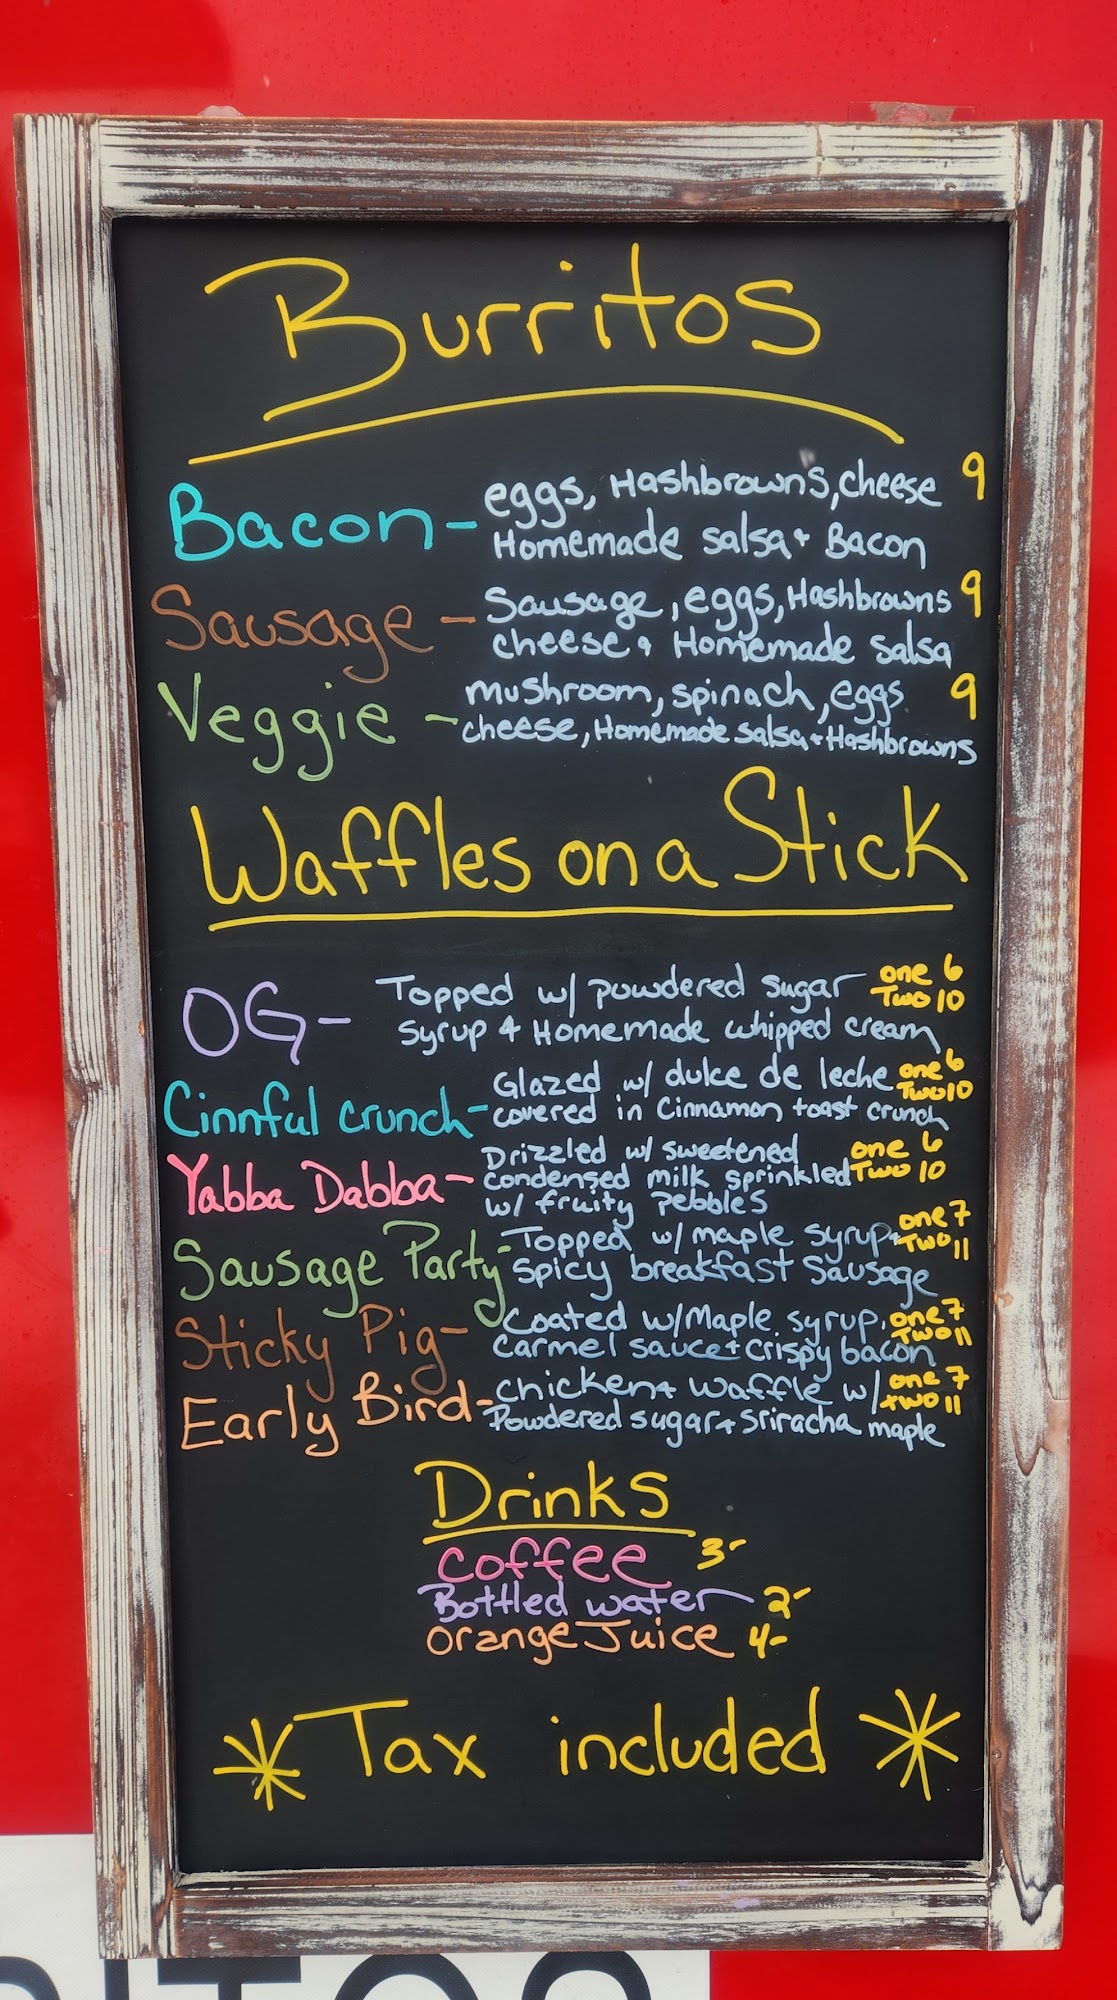 Burritos
Bacon- eggs, Hashbrowns, cheese 9
Homemade salsa + Bacon
Sausage - Sausage, eggs, Hashbrowns 9
cheese + Homemade salsa
Veggie - mushroom, spinach, eggs 9
cheese, Homemade salsa + Hashbrowns
Waffles on a Stick
OG- Topped w/ powdered sugar one 6
Two 10
syrup + Homemade whipped cream
Cinnful crunch- Glazed w/ dulce de leche one 6
Two 10
covered in Cinnamon toast crunch
Yabba Dabba- Drizzled w/ sweetened one 6
condensed milk sprinkled Two 10
w/ fruity pebbles
Sausage Party- Topped w/ maple syrup + one 7
Two 11
spicy breakfast sausage
Sticky Pig- Coated w/ Maple syrup, one 7
Two 11
Carmel sauce + crispy bacon
Early Bird- chicken + waffle w/ one 7
two 11
Powdered sugar + sriracha maple
Drinks
coffee 3-
Bottled water 2-
Orange Juice 4-
*Tax included*